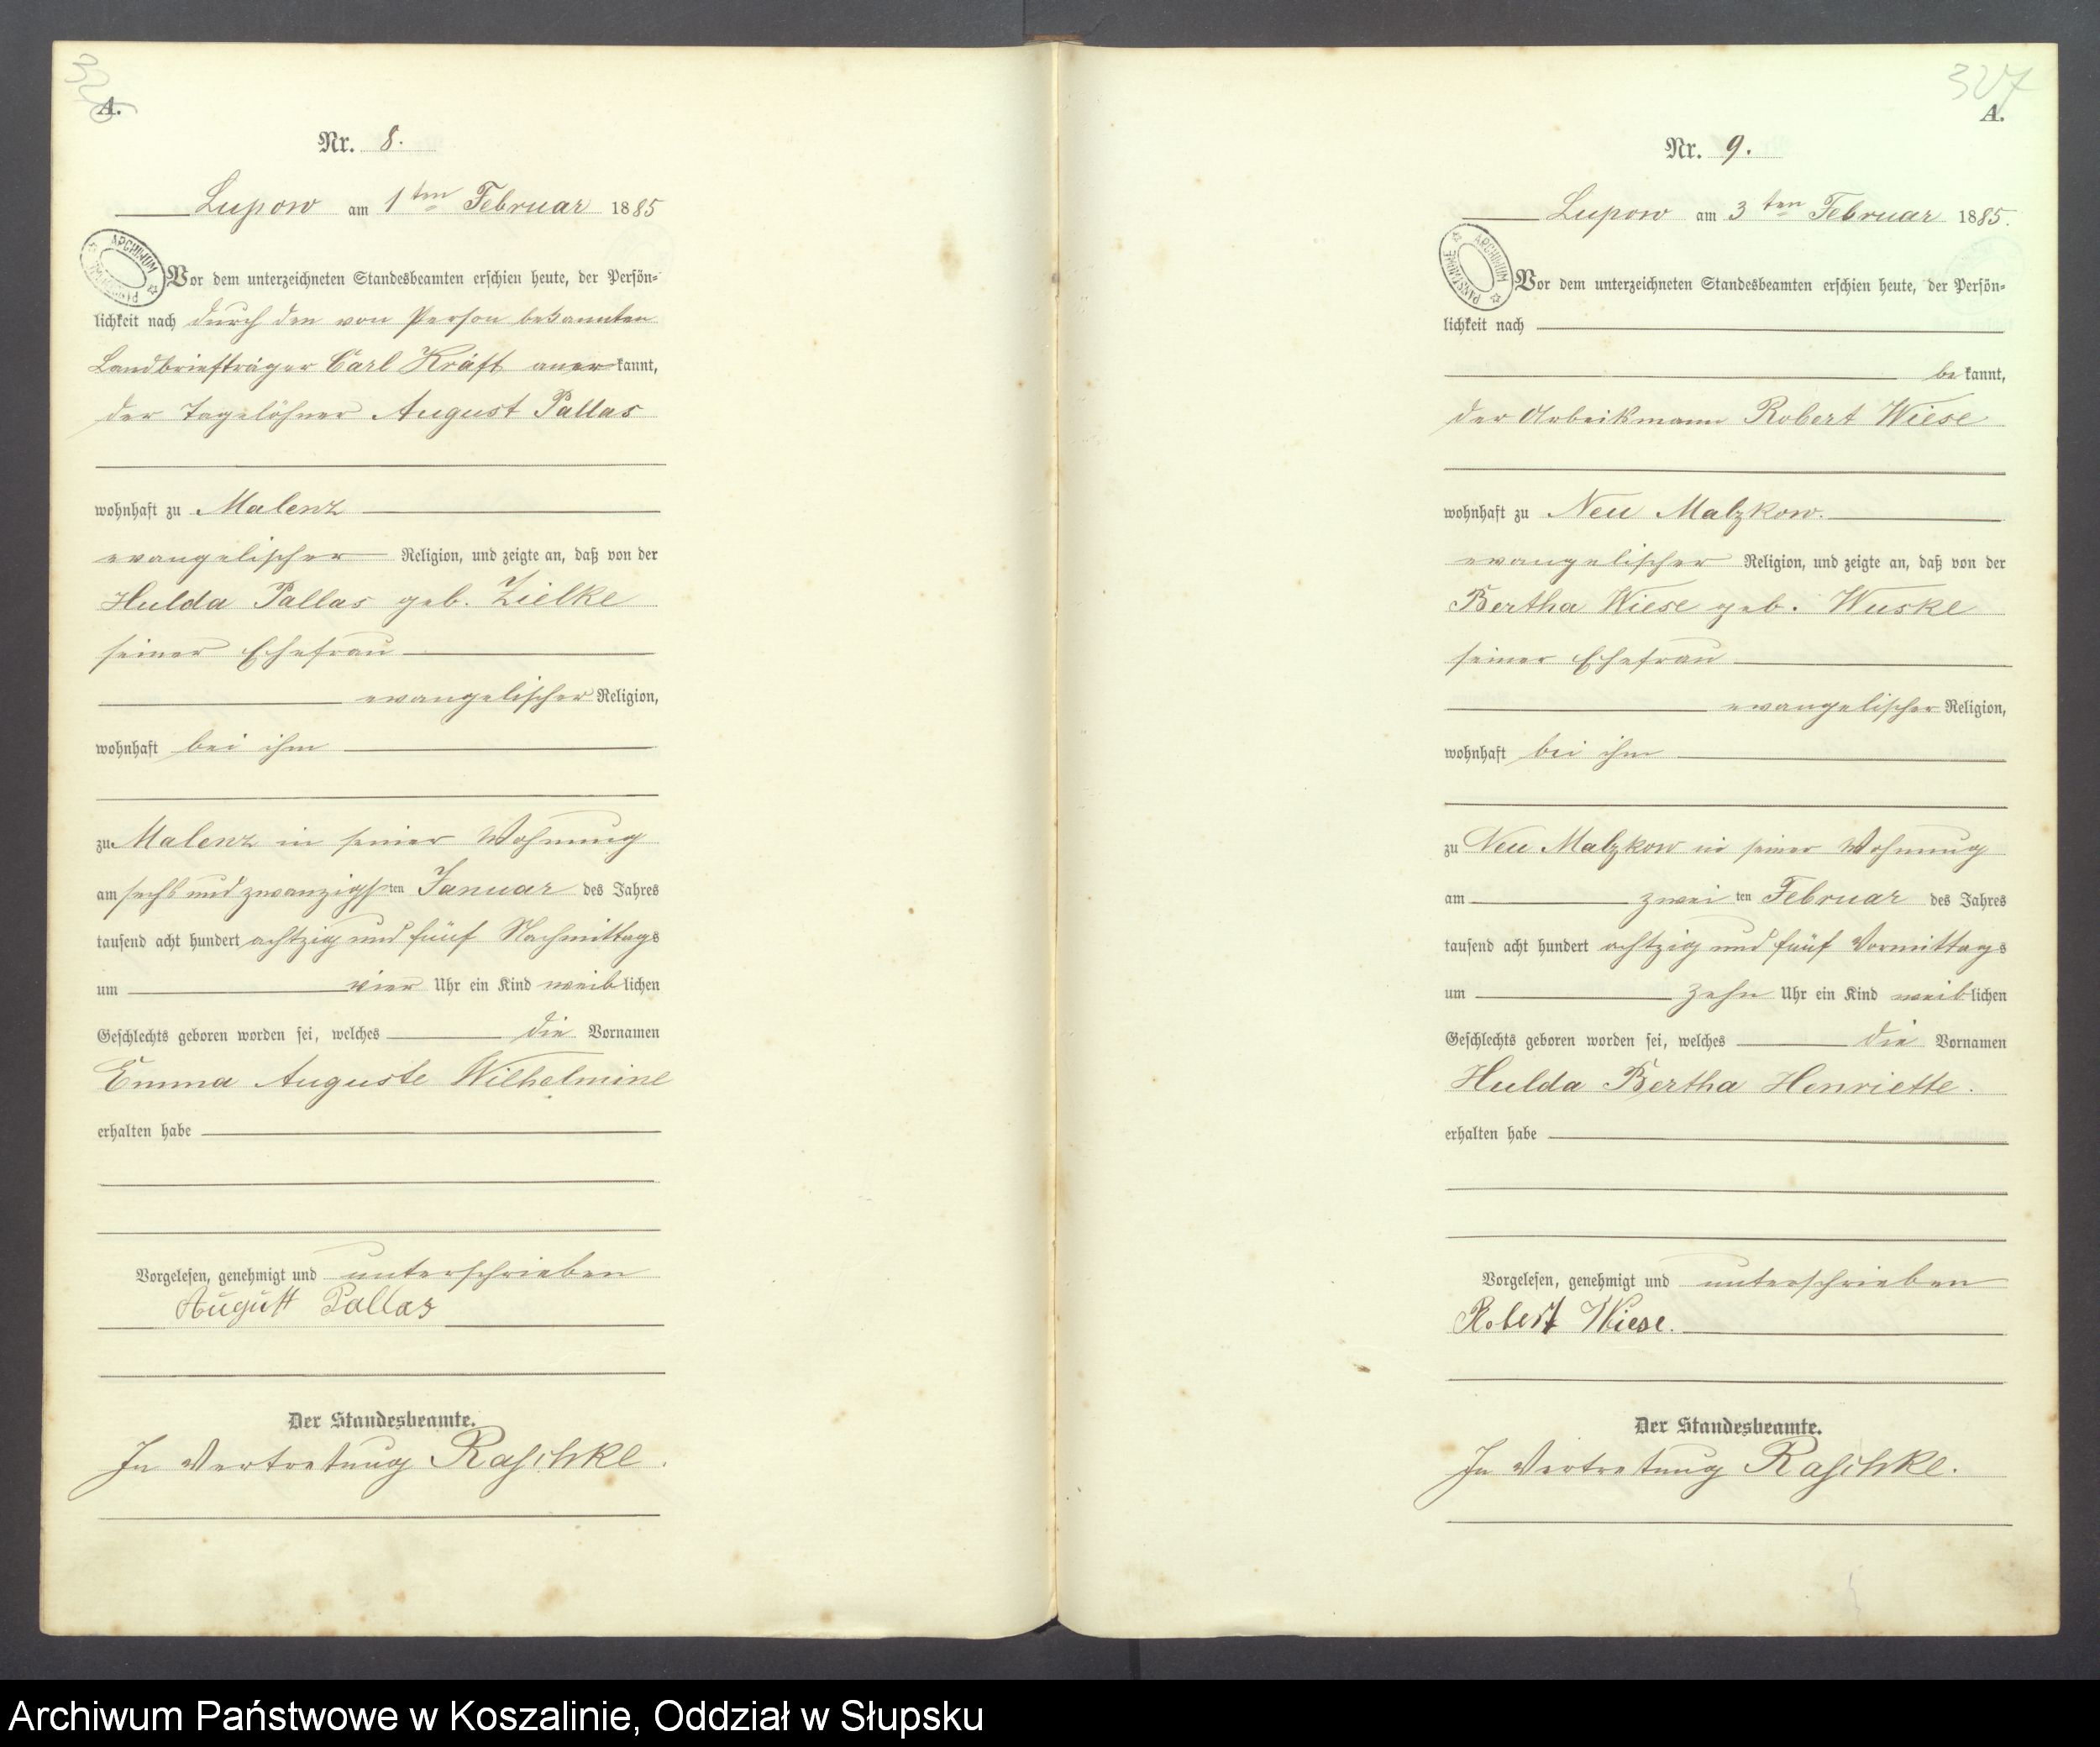 326
A.
Nr. 8.
Lupow am 1ten Februar 1885
ARCHIWUM PAŃSTWOWE
Vor dem unterzeichneten Standesbeamten erschien heute, der Persön=
lichkeit nach durch den von Person bekannten
Landbriefträger Carl Kräft anerkannt,
der Tagelöhner August Pallas
wohnhaft zu Malenz
evangelischer Religion, und zeigte an, daß von der
Hulda Pallas geb. Zielke
seiner Ehefrau
evangelischer Religion,
wohnhaft bei ihm
zu Malenz in seiner Wohnung
am sechs und zwanzigsten Januar des Jahres
tausend acht hundert achtzig und fünf Nachmittags
um vier Uhr ein Kind weiblichen
Geschlechts geboren worden sei, welches die Vornamen
Emma Auguste Wilhelmine
erhalten habe
Vorgelesen, genehmigt und unterschrieben
August Pallas
Der Standesbeamte.
In Vertretung Raschke.
327
A.
Nr. 9.
Lupow am 3ten Februar 1885.
ARCHIWUM PAŃSTWOWE
Vor dem unterzeichneten Standesbeamten erschien heute, der Persön=
lichkeit nach
bekannt,
der Arbeitsmann Robert Wiese
wohnhaft zu Neu Malzkow.
evangelischer Religion, und zeigte an, daß von der
Bertha Wiese geb. Wuske
seiner Ehefrau
evangelischer Religion,
wohnhaft bei ihm
zu Neu Malzkow in seiner Wohnung
am zweiten Februar des Jahres
tausend acht hundert achtzig und fünf Vormittags
um zehn Uhr ein Kind weiblichen
Geschlechts geboren worden sei, welches die Vornamen
Hulda Bertha Henriette.
erhalten habe
Vorgelesen, genehmigt und unterschrieben
Robert Wiese.
Der Standesbeamte.
In Vertretung Raschke.
Archiwum Państwowe w Koszalinie, Oddział w Słupsku